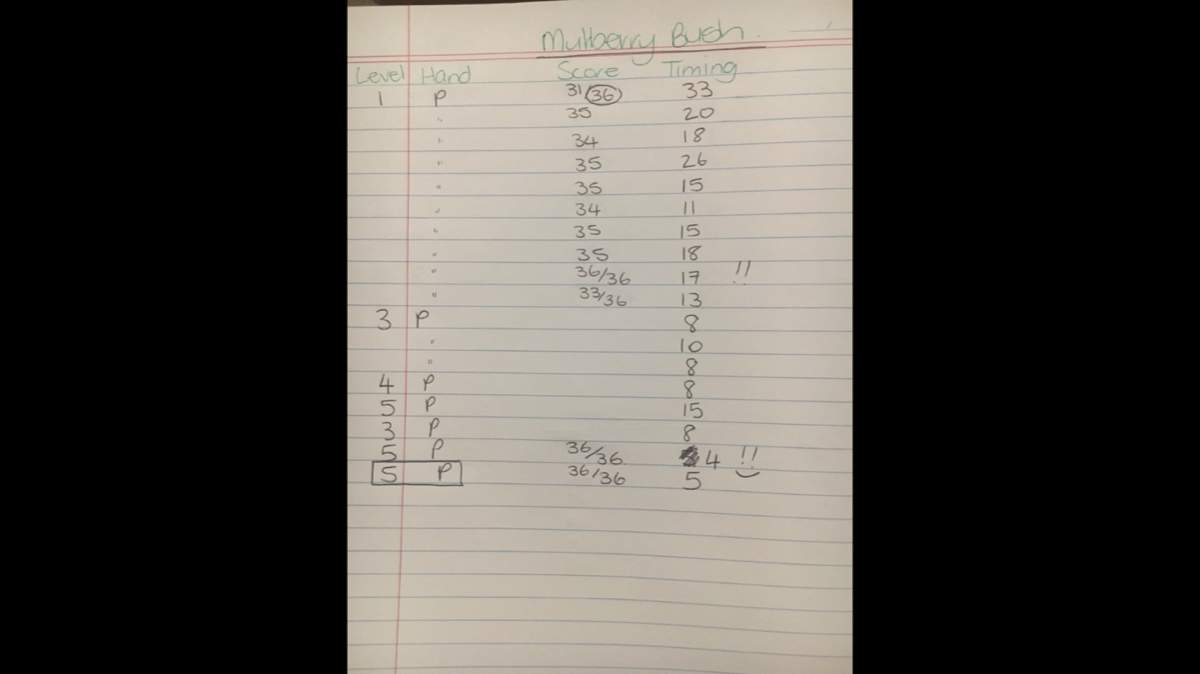 Mulberry Bush
Level Hand Score Timing
1 P 31 36 33
" 35 20
" 34 18
" 35 26
" 35 15
" 34 11
" 35 15
" 35 18
" 36/36 17 !!
" 33/36 13
3 P 8
" 10
" 8
4 P 8
5 P 15
3 P 8
5 P 36/36 4 !!
5 P 36/36 5